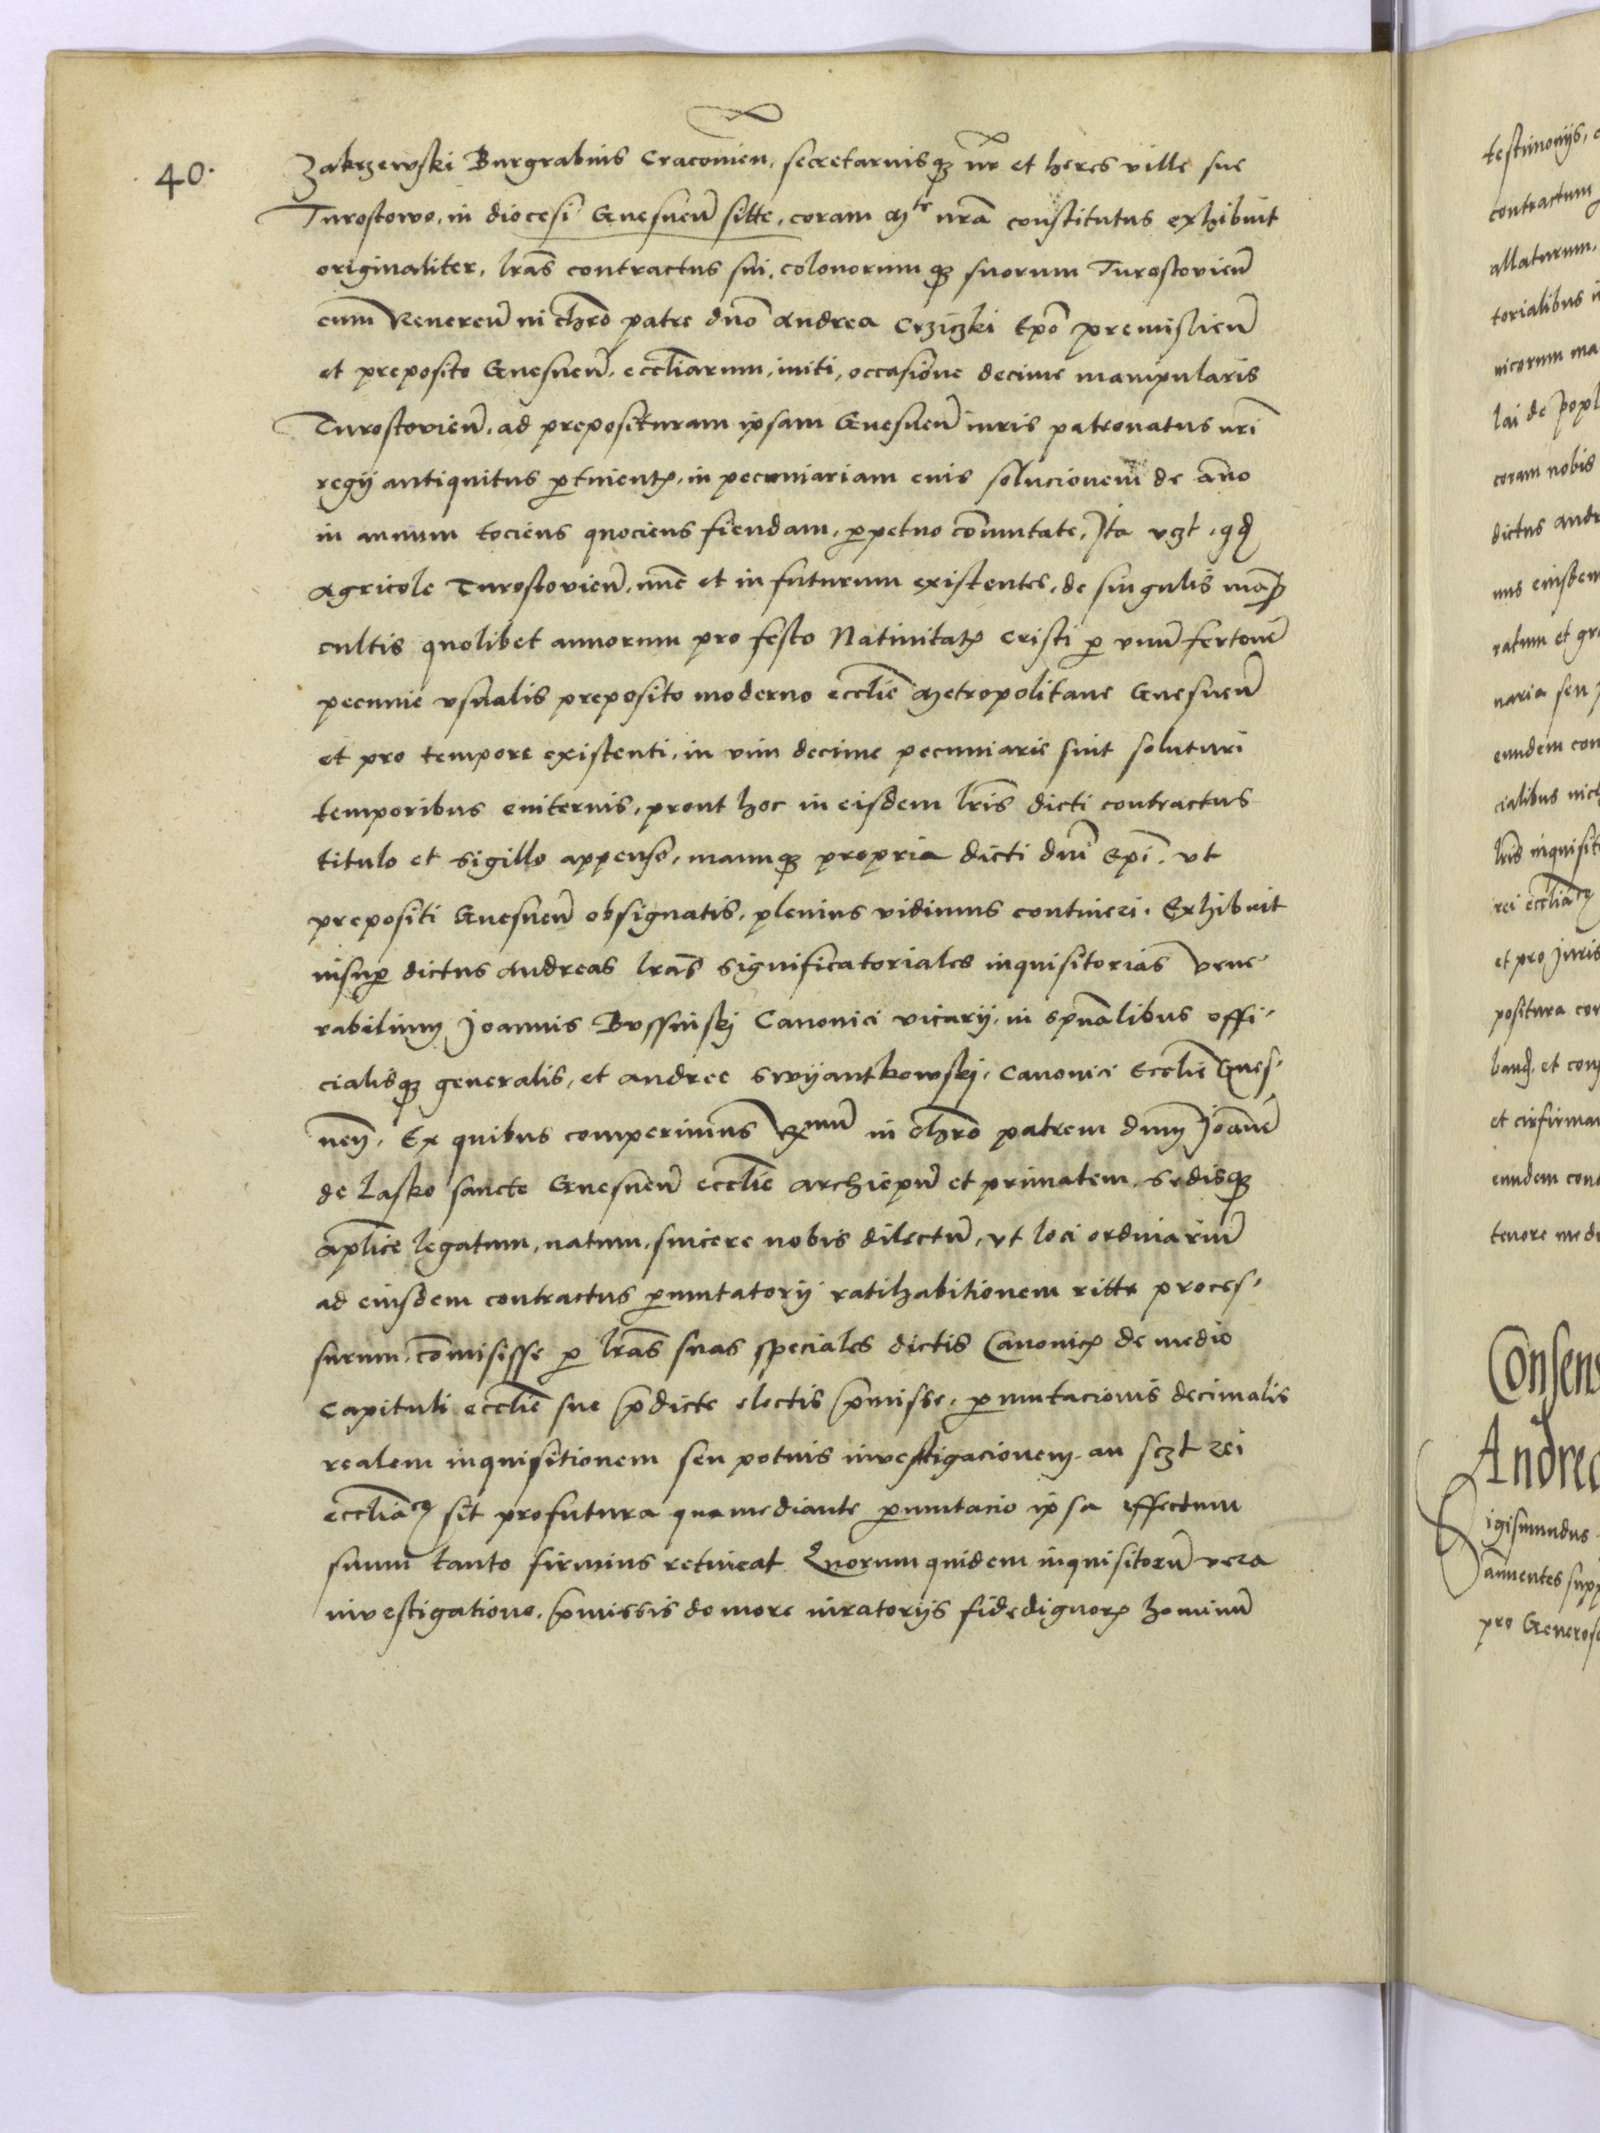 40.
Zakrzewski Burgrabius Cracovien, secretariusq nr et heres ville sue
Turostowo, in diocesi Gnesnen sitte, coram Mte nra constitutus exhibuit
originaliter, lras contractus sui, colonorumq suorum Turostovien
cum Reveren in chro patre dno Andrea Crziczki Epo premislien
et preposito Gnesnen, eccliarum, initi, occasione decime manipularis
Turostovien, ad preposituram ipsam Gnesnen iuris patronatus nri
regij antiquitus ptinent, in pecuniariam eius solucionem de anno
in annum tociens quociens fiendam, ppetuo comutate, Ita vzt, qd
Agricole Turostovien, nunc et in futurum existentes, de singulis
cultis quolibet annorum pro festo Nativitat Cristi p unu fertone
pecunie usualis preposito moderno ecclie Metropolitane Gnesnen
et pro tempore existenti, in vim decime pecuniarie sint soluturi
temporibus eviternis, prout hoc in eisdem lris dicti contractus
titulo et sigillo appenso, manuq propria dicti dni Epi, ut
prepositi Gnesnen obsignatis, plenius vidimus contineri. Exhibuit
insup dictus Andreas lras significatoriales inquisitorias vene
rabilium Joannis Bussinskj Canonici vicarij, in spualibus offi-
cialisq generalis, et Andree Swyantkowskj, Canonici Ecclie Gnes-
nen, Ex quibus comperimus Rmu in chro patrem dnm Joane
de Lasko sancte Gnesnen ecclie archiepu et primatem, sedisq
aplice legatum, natum, sincere nobis dilectu, ut loci ordinariu
ad eiusdem contractus pmutatorij ratihabitionem ritte proces-
surum, comisisse p lras suas speciales dictis Canonic de medio
Capituli ecclie sue pdicte electis pmisse, pmutacionis decimalis
realem inquisitionem seu potius investigacionem, an sczt rei
ecclia sit profutura qua mediante pmutacio ipsa effectum
suum tanto firmius retineat Quorum quidem inquisitoru vera
investigatione, pmissis de more iuratorijs fidedignor hominu
testimonijs,
contractum
allaturum,
torialibus
nicorum
lai de
coram nobis
dictus
nus
ratum et
naria seu
eundem
cialibus
lris
rei
et pro Juris
positura
et
et
eundem
tenore
Consens
Andrea
Sigismundus
annentes
pro Generos